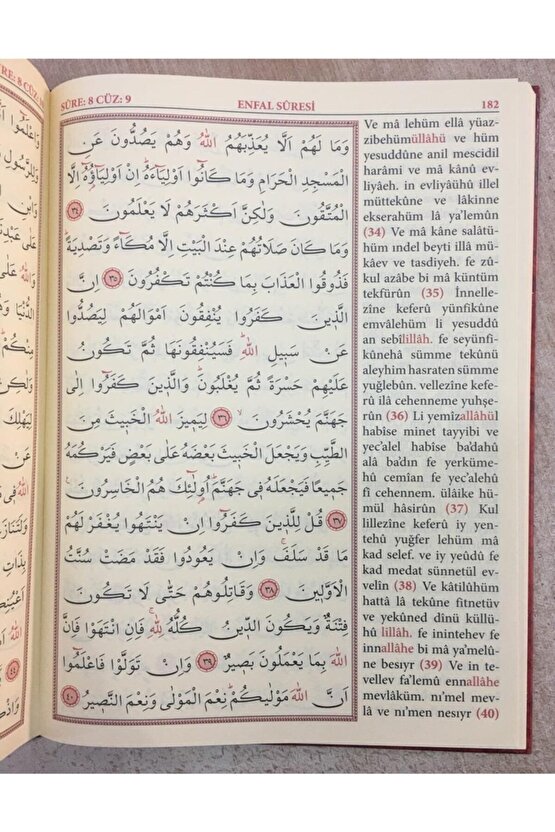 SÛRE: 8 CÜZ: 9
ENFAL SÛRESİ
182
وَمَا لَهُمْ اَلَّا يُعَذِّبَهُمُ اللّٰهُ وَهُمْ يَصُدُّونَ عَنِ
الْمَسْجِدِ الْحَرَامِ وَمَا كَانُٓوا اَوْلِيَٓاءَهُۜ اِنْ اَوْلِيَٓاؤُ۬هُٓ اِلَّا
الْمُتَّقُونَ وَلٰكِنَّ اَكْثَرَهُمْ لَا يَعْلَمُونَ ﴿٣٤﴾
وَمَا كَانَ صَلَاتُهُمْ عِنْدَ الْبَيْتِ اِلَّا مُكَٓاءً وَتَصْدِيَةًۜ
فَذُوقُوا الْعَذَابَ بِمَا كُنْتُمْ تَكْفُرُونَ ﴿٣٥﴾ اِنَّ
الَّذ۪ينَ كَفَرُوا يُنْفِقُونَ اَمْوَالَهُمْ لِيَصُدُّوا
عَنْ سَب۪يلِ اللّٰهِۜ فَسَيُنْفِقُونَهَا ثُمَّ تَكُونُ
عَلَيْهِمْ حَسْرَةً ثُمَّ يُغْلَبُونَۜ وَالَّذ۪ينَ كَفَرُٓوا اِلٰى
جَهَنَّمَ يُحْشَرُونَۙ ﴿٣٦﴾ لِيَم۪يزَ اللّٰهُ الْخَب۪يثَ مِنَ
الطَّيِّبِ وَيَجْعَلَ الْخَب۪يثَ بَعْضَهُ عَلٰى بَعْضٍ فَيَرْكُمَهُ
جَم۪يعًا فَيَجْعَلَهُ ف۪ي جَهَنَّمَۜ اُو۬لٰٓئِكَ هُمُ الْخَاسِرُونَ۟
﴿٣٧﴾ قُلْ لِلَّذ۪ينَ كَفَرُٓوا اِنْ يَنْتَهُوا يُغْفَرْ لَهُمْ
مَا قَدْ سَلَفَۚ وَاِنْ يَعُودُوا فَقَدْ مَضَتْ سُنَّتُ
الْاَوَّل۪ينَ ﴿٣٨﴾ وَقَاتِلُوهُمْ حَتّٰى لَا تَكُونَ
فِتْنَةٌ وَيَكُونَ الدّ۪ينُ كُلُّهُ لِلّٰهِۚ فَاِنِ انْتَهَوْا فَاِنَّ
اللّٰهَ بِمَا يَعْمَلُونَ بَص۪يرٌ ﴿٣٩﴾ وَاِنْ تَوَلَّوْا فَاعْلَمُٓوا
اَنَّ اللّٰهَ مَوْلٰيكُمْۜ نِعْمَ الْمَوْلٰى وَنِعْمَ النَّص۪يرُ ﴿٤٠﴾
Ve mâ lehüm ellâ yüaz-
zibehümüllâhü ve hüm
yesuddûne anil mescidil
harâmi ve mâ kânû ev-
liyâeh. in evliyâühû illel
müttekûne ve lâkinne
ekserahüm lâ ya'lemûn
(34) Ve mâ kâne salâtü-
hüm ındel beyti illâ mü-
kâev ve tasdiyeh. fe zû-
kul azâbe bi mâ küntüm
tekfürûn (35) İnnelle-
zîne keferû yünfikûne
emvâlehüm li yesuddû
an sebîlillâh. fe seyünfi-
kûnehâ sümme tekûnü
aleyhim hasraten sümme
yuğlebûn. vellezîne kefe-
rû ilâ cehenneme yuhşe-
rûn (36) Li yemîzallâhül
habîse minet tayyibi ve
yec'alel habîse ba'dahû
alâ ba'dın fe yerküme-
hû cemîan fe yec'alehû
fî cehennem. ülâike hü-
mül hâsirûn (37) Kul
lillezîne keferû iy yen-
tehû yuğfer lehüm mâ
kad selef. ve iy yeûdû fe
kad medat sünnetül ev-
velîn (38) Ve kâtilûhüm
hattâ lâ tekûne fitnetüv
ve yekûned dînü küllü-
hû lillâh. fe inintehev fe
innallâhe bi mâ ya'melû-
ne besıyr (39) Ve in te-
vellev fa'lemû ennallâhe
mevlâküm. nı'mel mev-
lâ ve nı'men nesıyr (40)